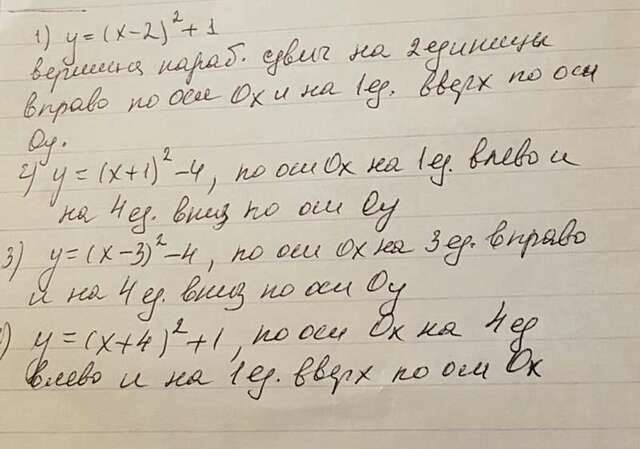 1) y=(x-2)²+1
вершина параб. сдвиг на 2единицы
вправо по оси Ox и на 1ед. вверх по оси
Oy.
2) y=(x+1)²-4, по оси Ox на 1ед. влево и
на 4ед. вниз по оси Oy
3) y=(x-3)²-4, по оси Ox на 3ед. вправо
и на 4ед. вниз по оси Oy
) y=(x+4)²+1, по оси Ox на 4ед
влево и на 1ед. вверх по оси Ox